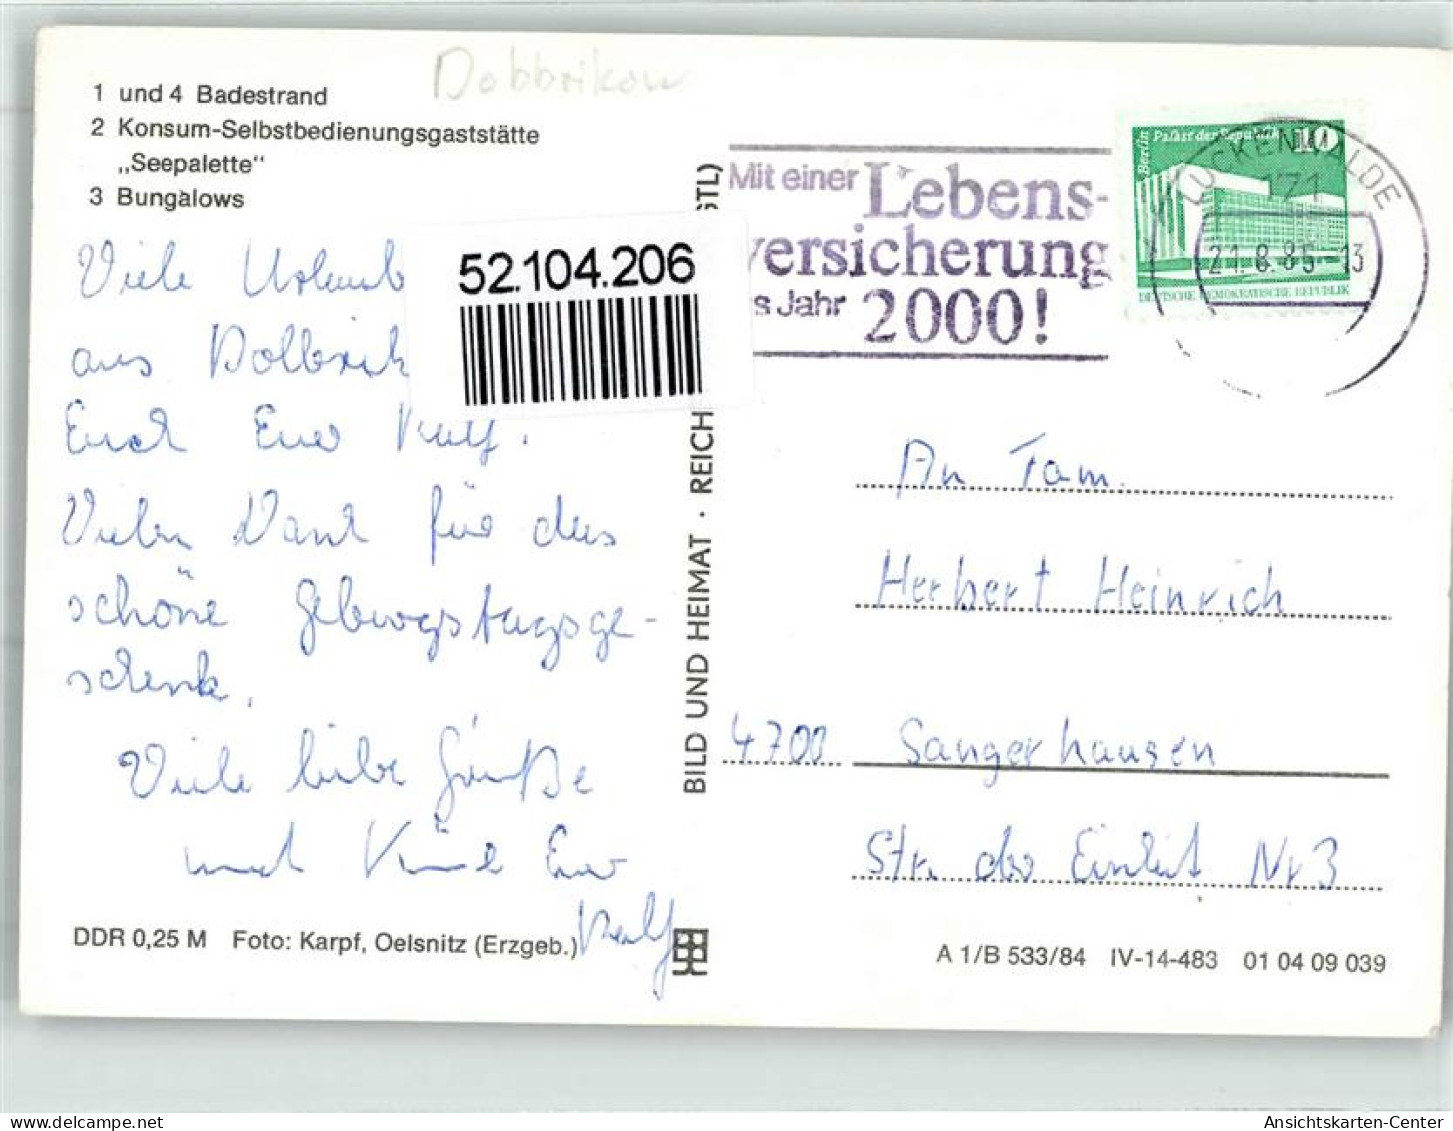 Dobbrikow
1 und 4 Badestrand
2 Konsum-Selbstbedienungsgaststätte
„Seepalette“
3 Bungalows
Viele Urlaub
aus Dobbrik
Euch Euer Ralf.
Vielen Dank für das
schöne Geburtstagsge-
schenk.
Viele liebe Grüße
und Küsse Euer
Ralf
DDR 0,25 M Foto: Karpf, Oelsnitz (Erzgeb.)
52.104.206
BILD UND HEIMAT · REICH
STL)
Mit einer Lebens-
versicherung
s Jahr 2000!
Berlin Palast der Republik 10
DEUTSCHE DEMOKRATISCHE REPUBLIK
LUCKENWALDE
171
21.8.85-13
An Fam.
Herbert Heinrich
4700 Sangerhausen
Str. der Einheit Nr 3
A 1/B 533/84 IV-14-483 01 04 09 039
Ansichtskarten-Center